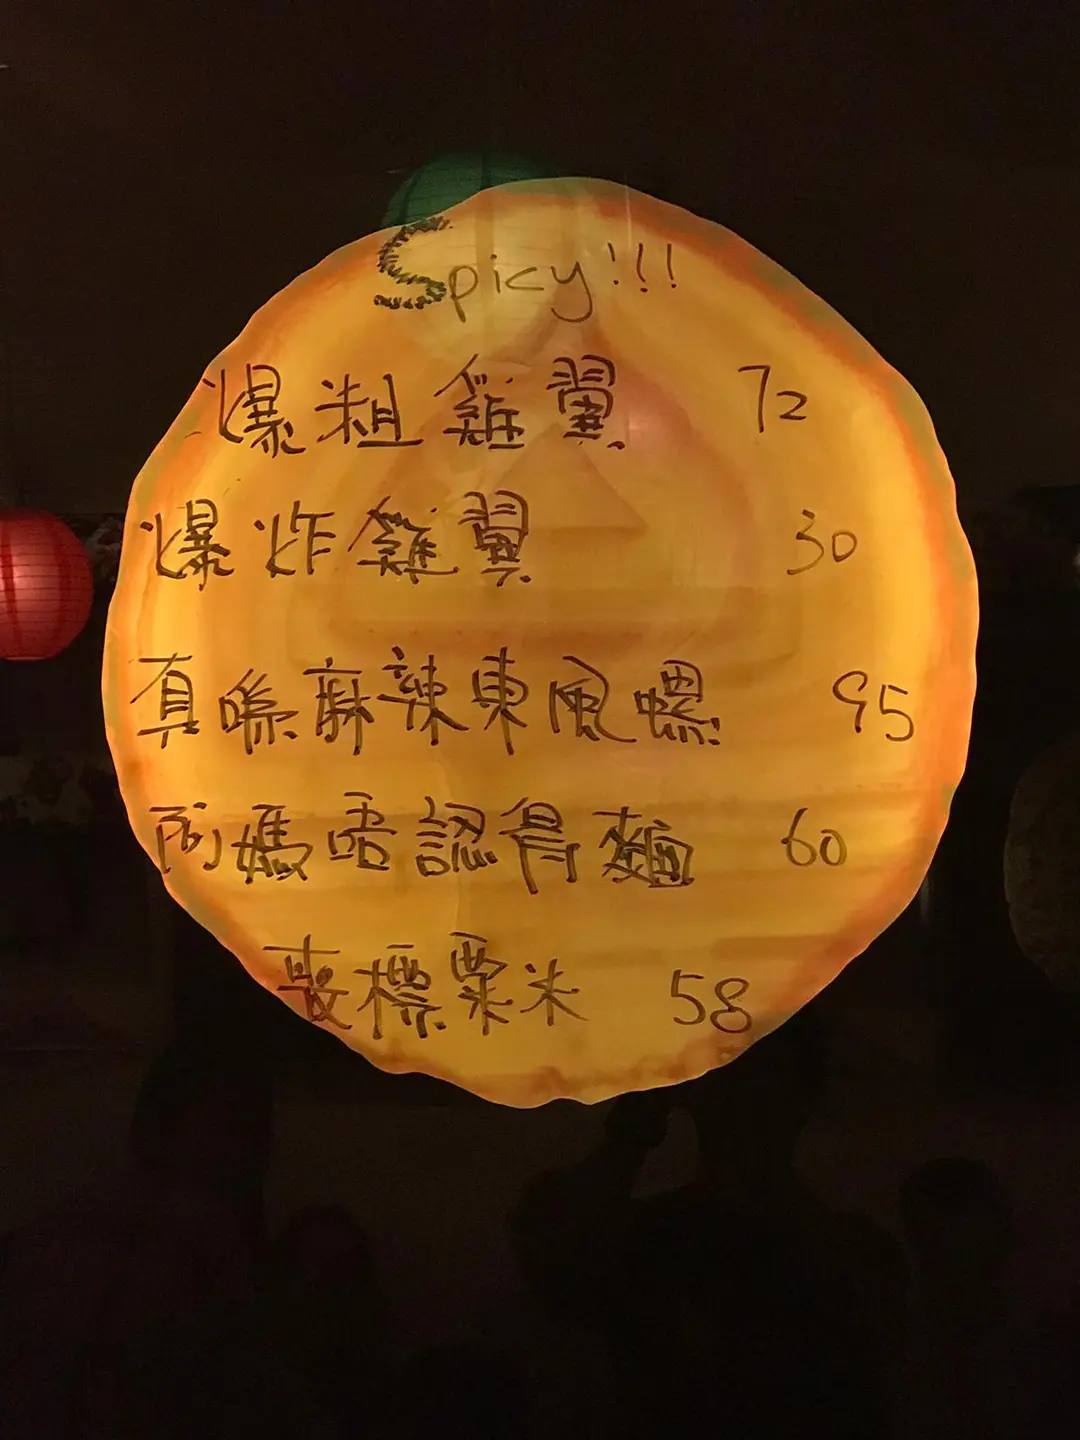 Spicy!!!
爆粗雞翼 72
爆炸雞翼 30
真喺麻辣東風螺 95
阿媽唔認得麵 60
喪標粟米 58